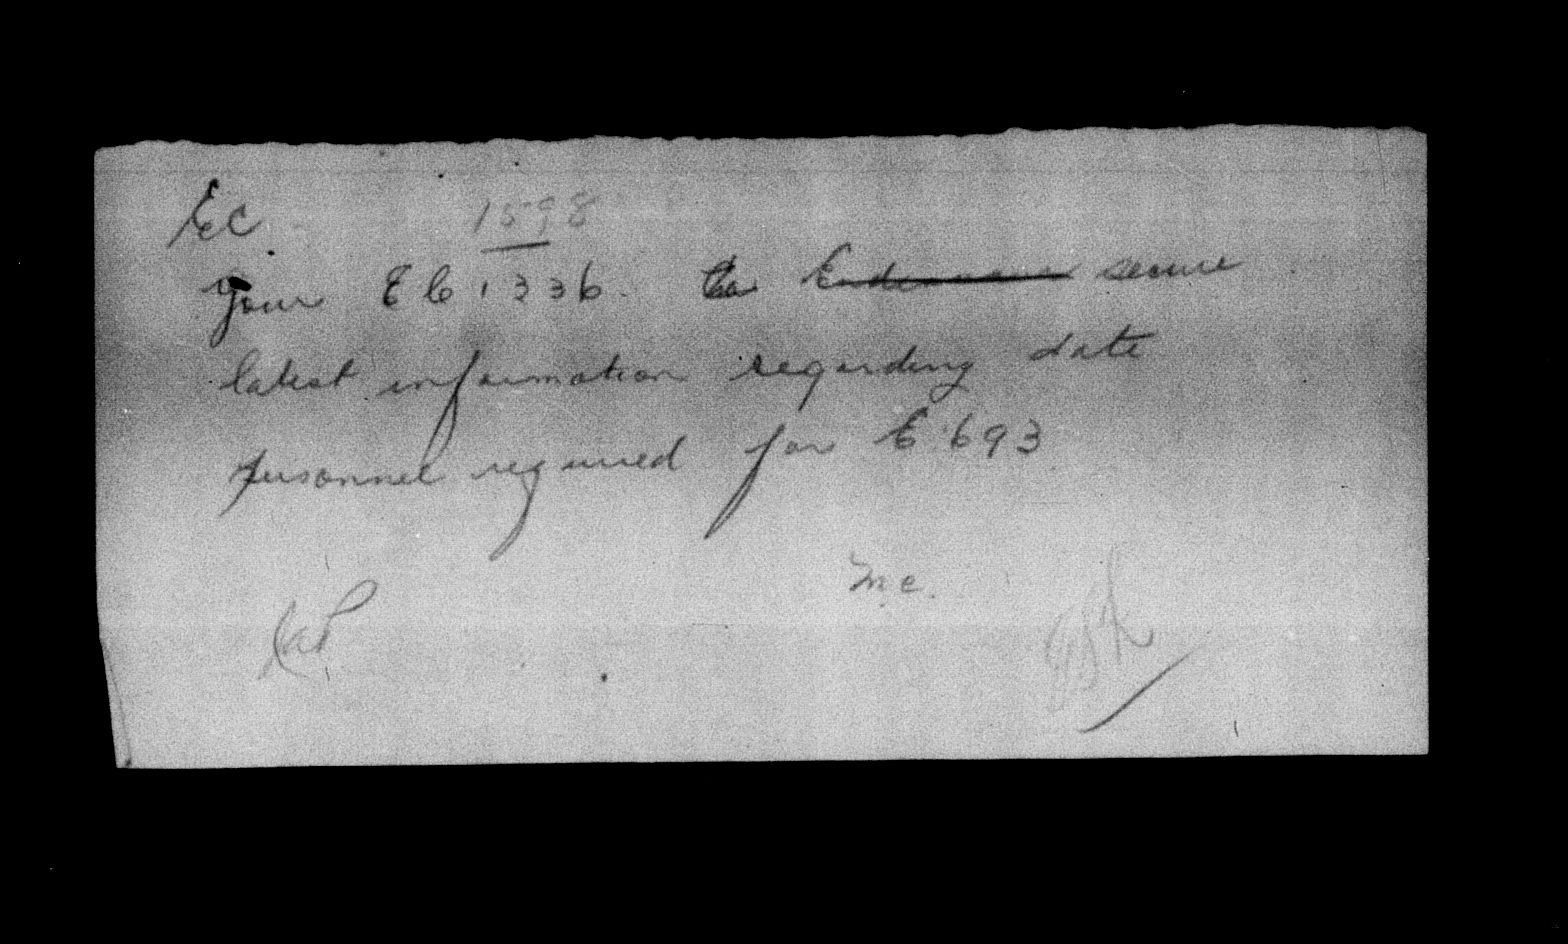 EC 1598
Your EC 1336. secure
latest information regarding date
personnel required for E 693
M.C.